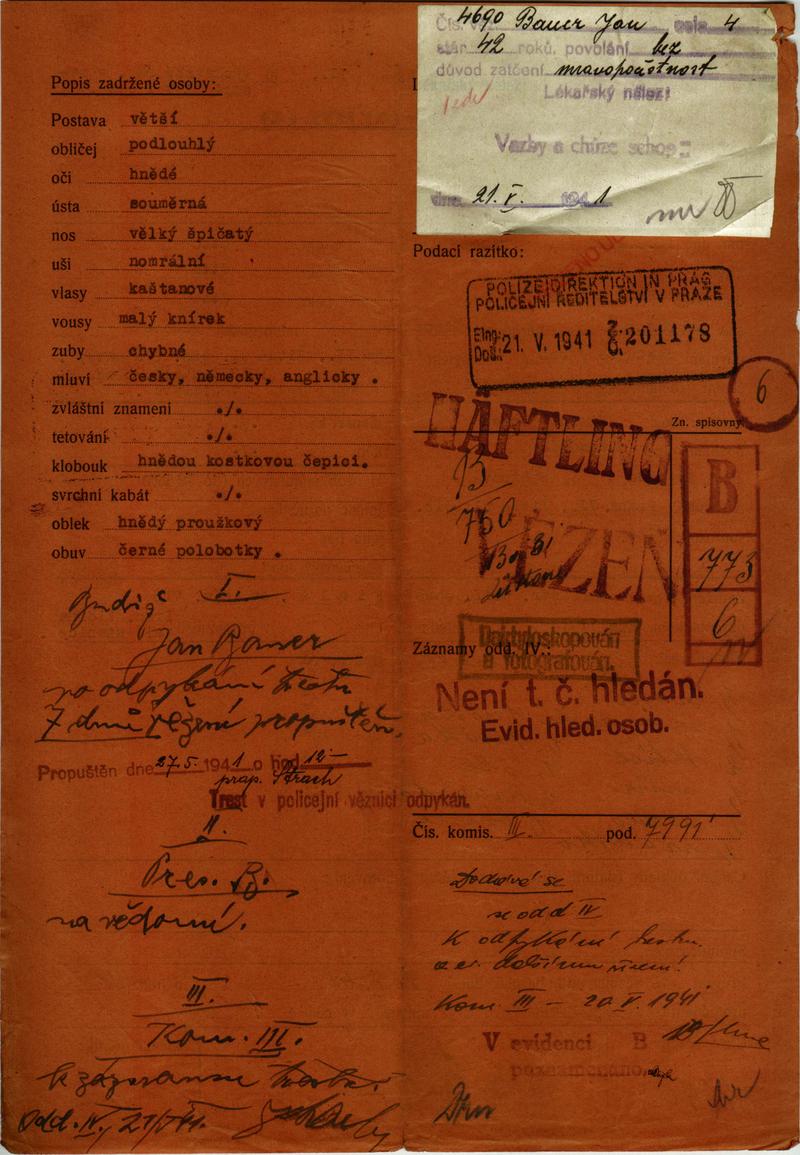 Popis zadržené osoby:
Postava větší
obličej podlouhlý
oči hnědé
ústa souměrná
nos vělký špičatý
uši nomrální
vlasy kaštanové
vousy malý knírek
zuby chybné
mluví česky, německy, anglicky .
zvláštní znamení ./.
tetování ./.
klobouk hnědou kostkovou čepici.
svrchní kabát ./.
oblek hnědý proužkový
obuv černé polobotky .
I.
Jan Bauer
po odpykání trestu
7 dnů vězení propuštěn.
Propuštěn dne 27.5. 1941 o hod. 12-
prap. Strach
Trest v policejní věznici odpykán.
II.
Pres. B.
na vědomí.
III.
Kom. III.
Odd. IV.
Čís. 4690 Bauer Jan cela 4
stár 42 roků, povolání bez
důvod zatčení mravopočestnost
Lékařský nález:
Vazby a chůze schop
dne 21. V. 1941
Podací razítko:
POLIZEIDIREKTION IN PRAG
POLICEJNÍ ŘEDITELSTVÍ V PRAZE
Eing.:
Doš.: 21. V. 1941 201178
6
Zn. spisovny
HÄFTLING
VĚZEŇ
13
760
B
773
6
Záznamy odd. IV.:
Daktyloskopován
a fotografován.
Není t. č. hledán.
Evid. hled. osob.
Čís. komis. III. pod. 7991
Dodává se
odd IV
k odpykání trestu
Kom. III – 20 V. 1941
V evidenci B
poznamenáno